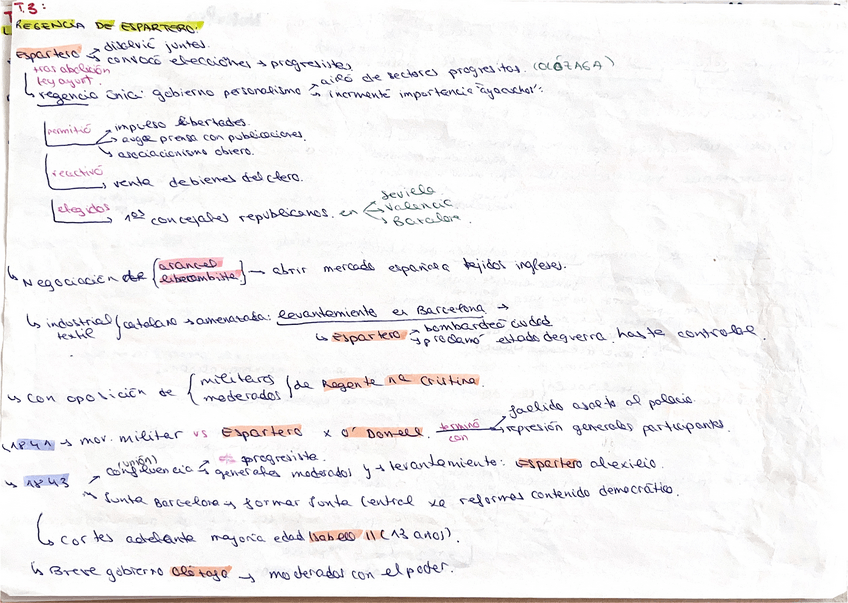 T.3:
REGENCIA DE ESPARTERO:
Espartero → disolvió juntas.
→ convocó elecciones → progresistas
tras abolición
ley ayunt.
↳ regencia única: gobierno personalismo → airó de sectores progresitas. (OLÓZAGA)
→ incrementó importancia "ayacuchos":
permitió → impulso libertades.
→ auge prensa con publicaciones.
→ asociacionismo obrero.
reactivó → venta de bienes del clero.
elegidos → 1os concejales republicanos. en
Sevilla
Valencia
Barcelon.
↳ Negociación de [arancel
librecambista] → abrir mercado española tejidos ingleses.
↳ industrial textil { catalano → amenazada: levantamiento en Barcelona →
↳ Espartero → bombardeó ciudad
→ proclamó estado de guerra. hasta controlar.
↳ Con oposición de { militares
moderados } de Regente Mª Cristina.
(1841 → mov. militar vs Espartero x O'Donell. terminó con → fallido asalto al palacio
→ represión generales participantes.
↳ 1843 → confluencia (unión) progresista.
generales moderados y → levantamiento: Espartero al exilio.
↳ Junta Barcelona → formar Junta Central xa reformas contenido democrático.
↳ Cortes adelanta mayoría edad Isabel II (13 años).
↳ Breve gobierno Olózaga → moderados con el poder.